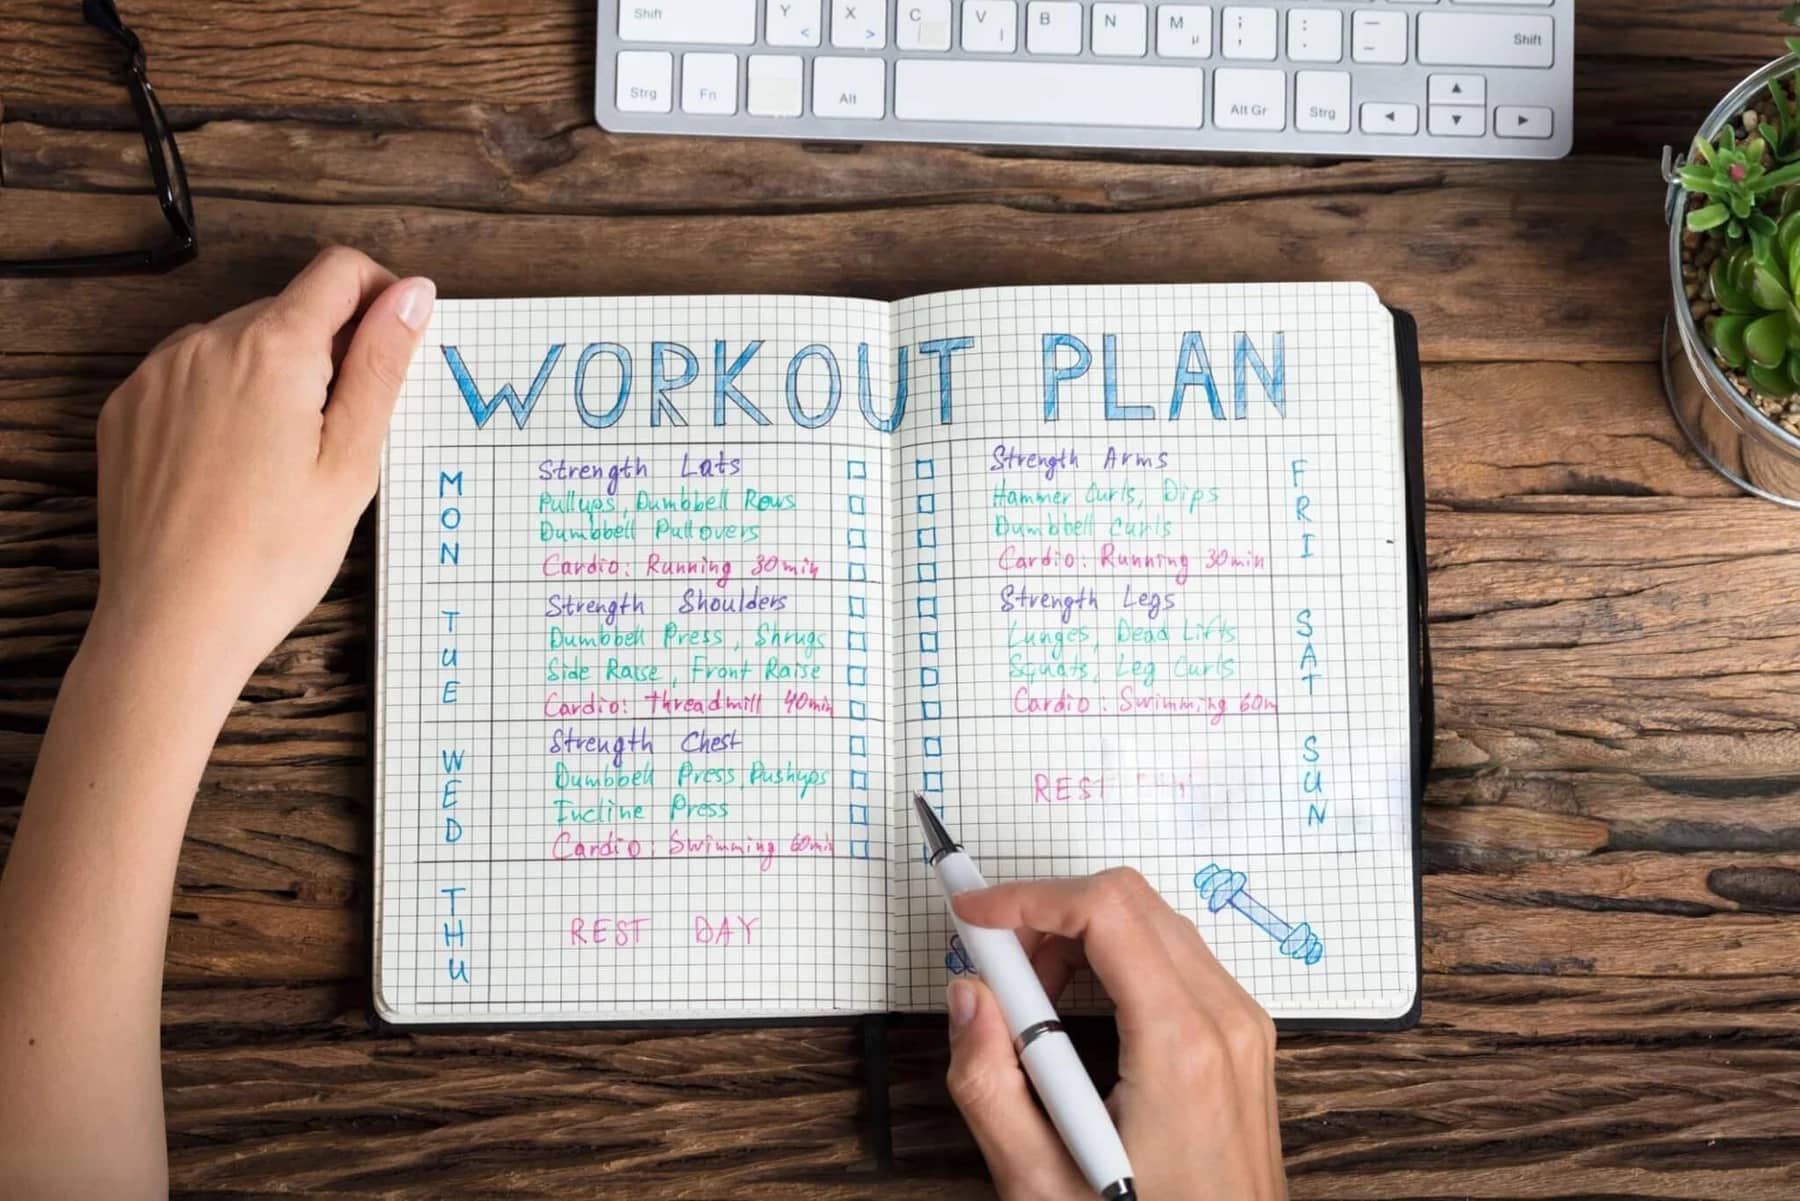 Shift Y < X > C V B N M µ ; , : . — – Shift
Strg Fn Alt Alt Gr Strg
WORKOUT PLAN
MON
Strength Lats
Pullups, Dumbbell Rows
Dumbbell Pullovers
Cardio: Running 30min
TUE
Strength Shoulders
Dumbbell Press, Shrugs
Side Raise, Front Raise
Cardio: Threadmill 40min
WED
Strength Chest
Dumbbell Press, Pushups
Incline Press
Cardio: Swimming 60min
THU
REST DAY
FRI
Strength Arms
Hammer Curls, Dips
Dumbbell Curls
Cardio: Running 30min
SAT
Strength Legs
Lunges, Dead Lifts
Squats, Leg Curls
Cardio: Swimming 60m
SUN
REST